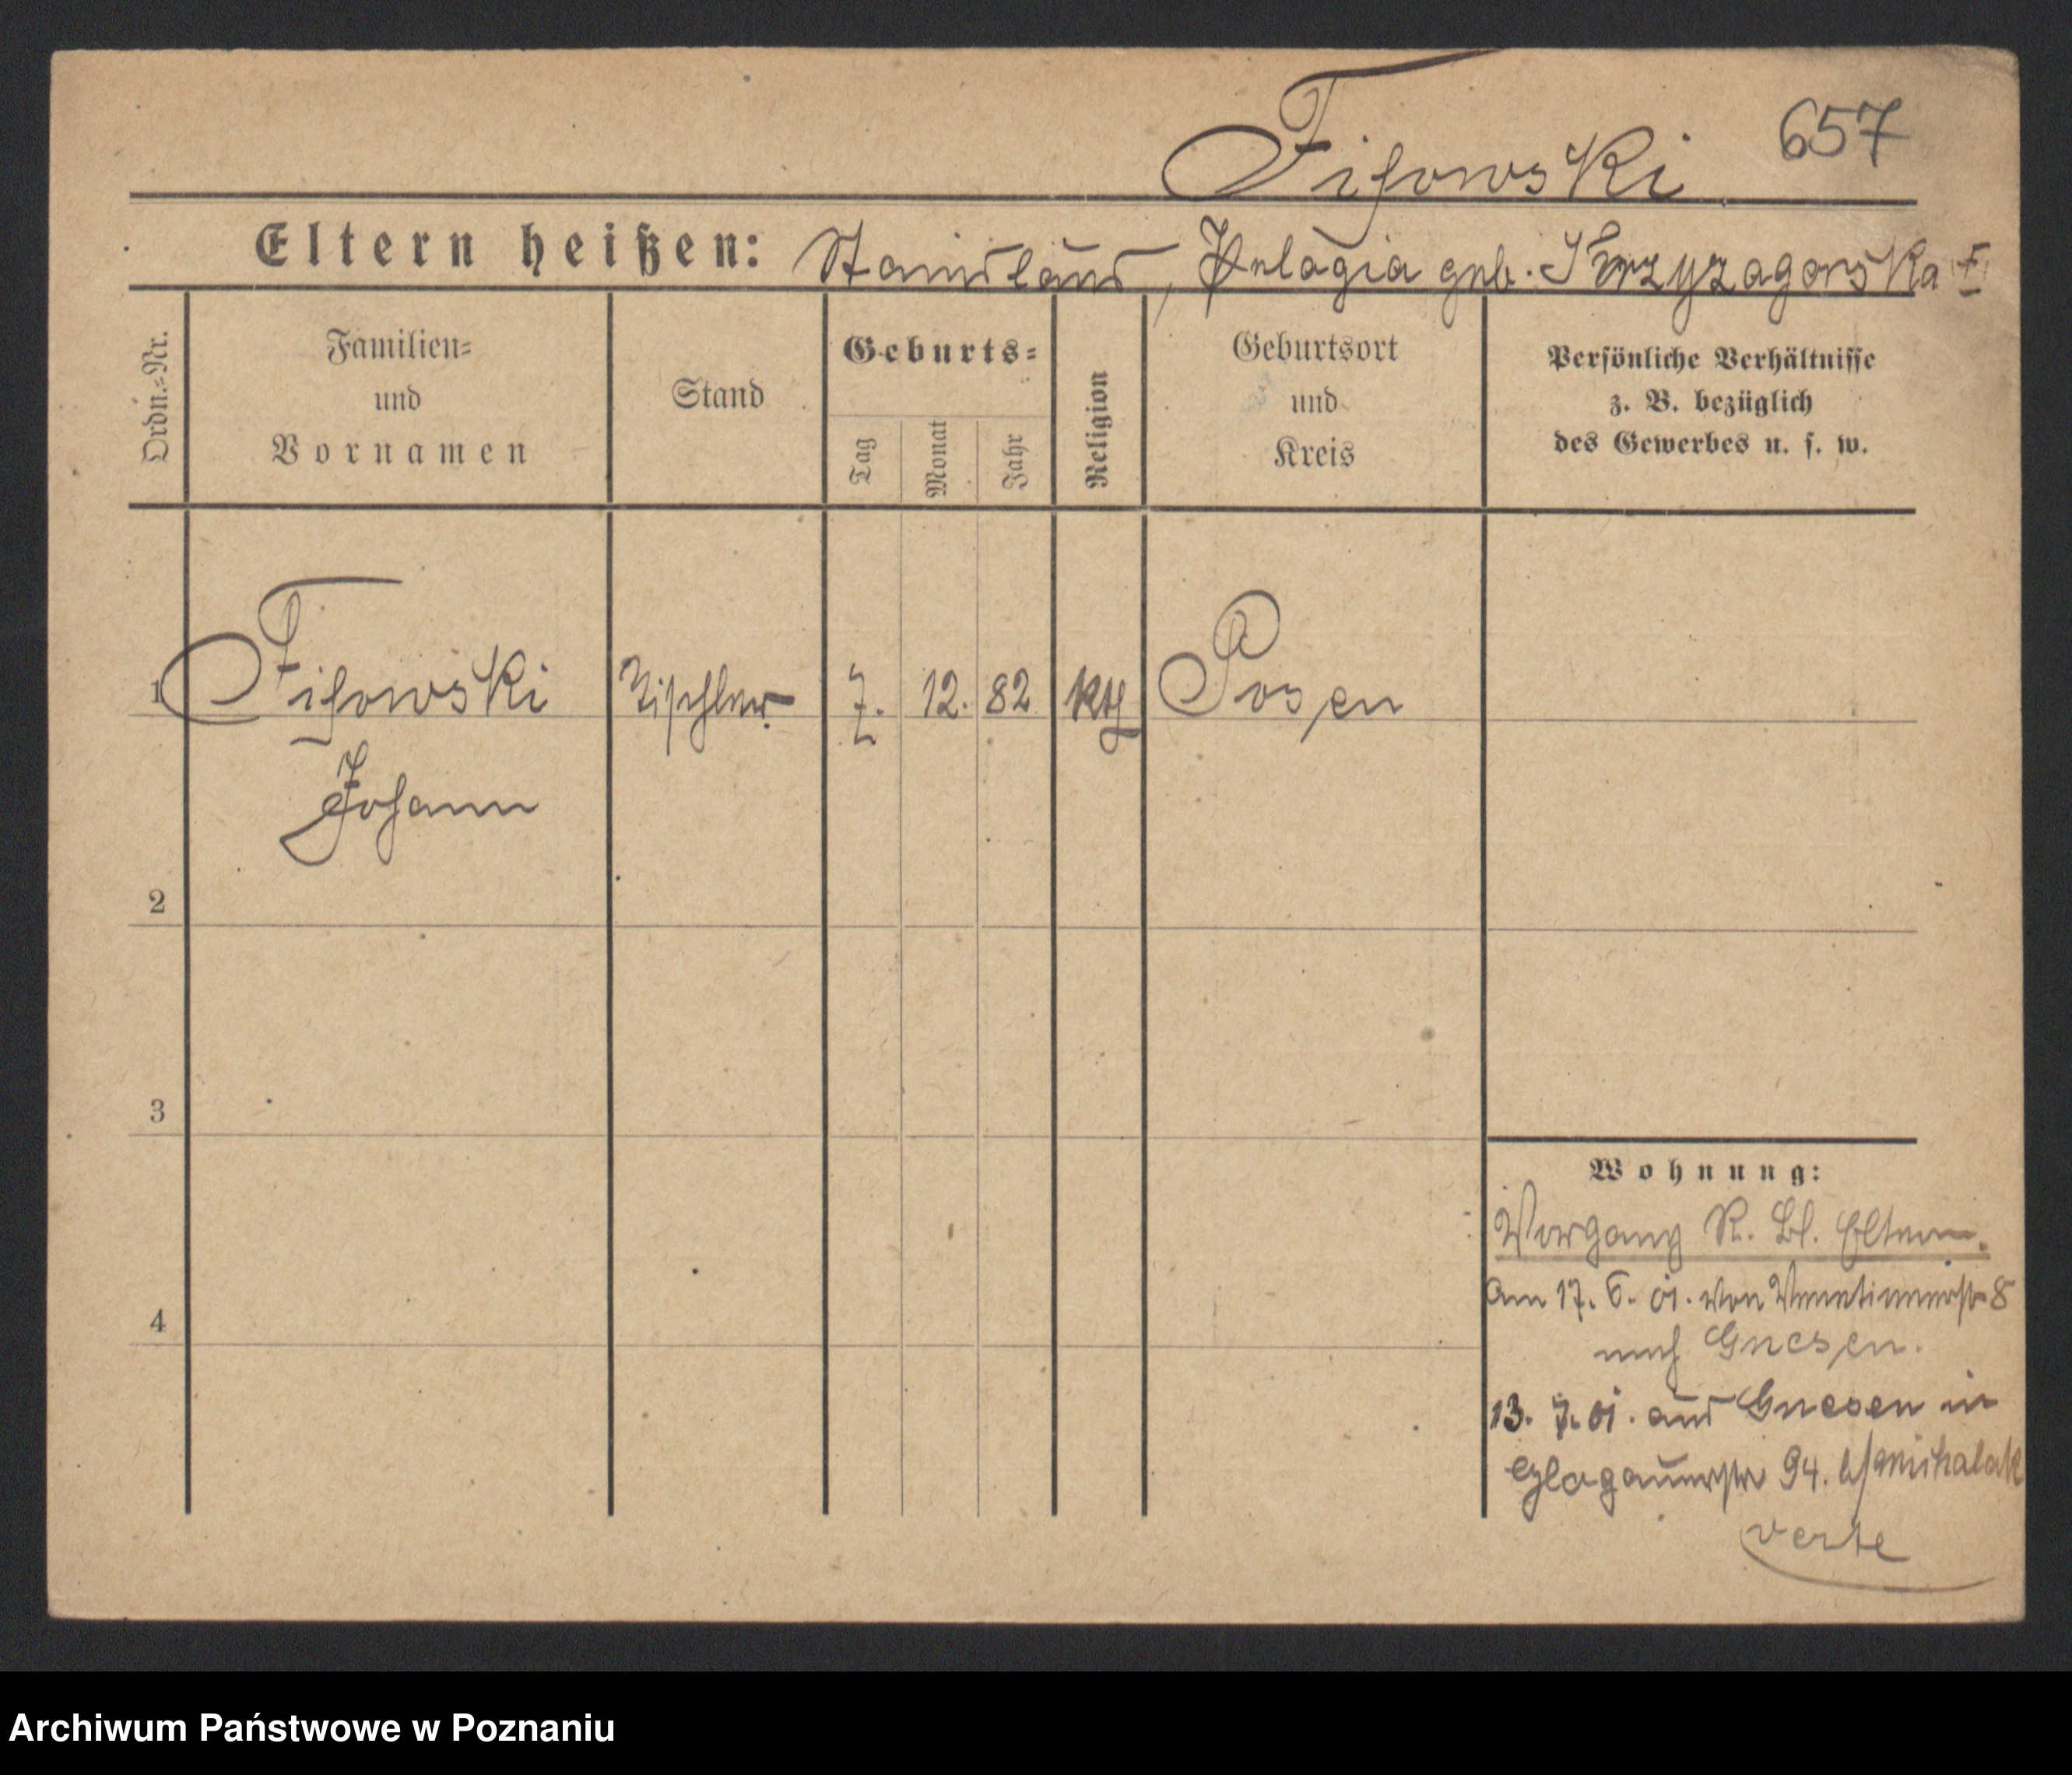 657
Fisowski
Eltern heißen: Stanislaus, Pelagia geb. Skrzyzagorska
Ordn.=Nr.
Familien=
und
Vornamen
Stand
Geburts=
Tag
Monat
Jahr
Religion
Geburtsort
und
Kreis
Persönliche Verhältnisse
z. B. bezüglich
des Gewerbes u. s. w.
1 Fisowski Tischler 7. 12. 82 kth Posen
Johann
2
3
4
Wohnung:
Vorgang K. Bl. Eltern.
Am 17. 6. 01. von 8
nach Gnesen.
13. 7. 01. aus Gnesen in
Glogauerstr 94. b/Michalak
verte
Archiwum Państwowe w Poznaniu